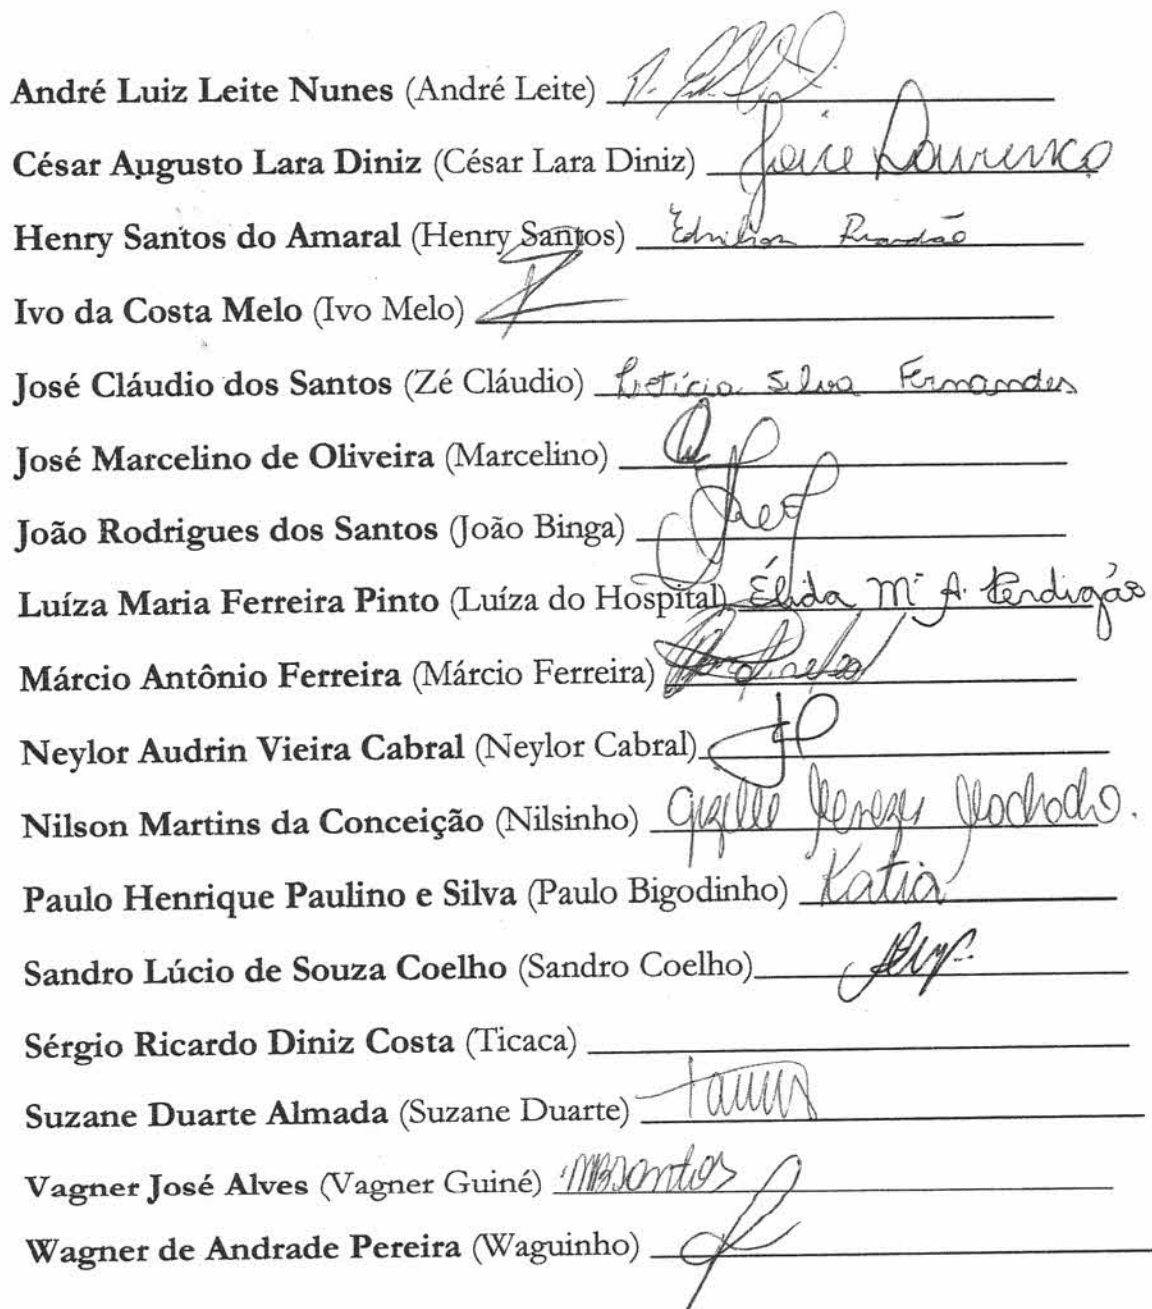 André Luiz Leite Nunes (André Leite)
César Augusto Lara Diniz (César Lara Diniz) Joice Lourenço
Henry Santos do Amaral (Henry Santos) Ednilson
Ivo da Costa Melo (Ivo Melo)
José Cláudio dos Santos (Zé Cláudio) Letícia Silva Fernandes
José Marcelino de Oliveira (Marcelino)
João Rodrigues dos Santos (João Binga)
Luíza Maria Ferreira Pinto (Luíza do Hospital) Élida Mª A. Perdigão
Márcio Antônio Ferreira (Márcio Ferreira)
Neylor Audrin Vieira Cabral (Neylor Cabral)
Nilson Martins da Conceição (Nilsinho) Gizelle Menezes Machado.
Paulo Henrique Paulino e Silva (Paulo Bigodinho) Katia
Sandro Lúcio de Souza Coelho (Sandro Coelho)
Sérgio Ricardo Diniz Costa (Ticaca)
Suzane Duarte Almada (Suzane Duarte)
Vagner José Alves (Vagner Guiné) MBSantos
Wagner de Andrade Pereira (Waguinho)